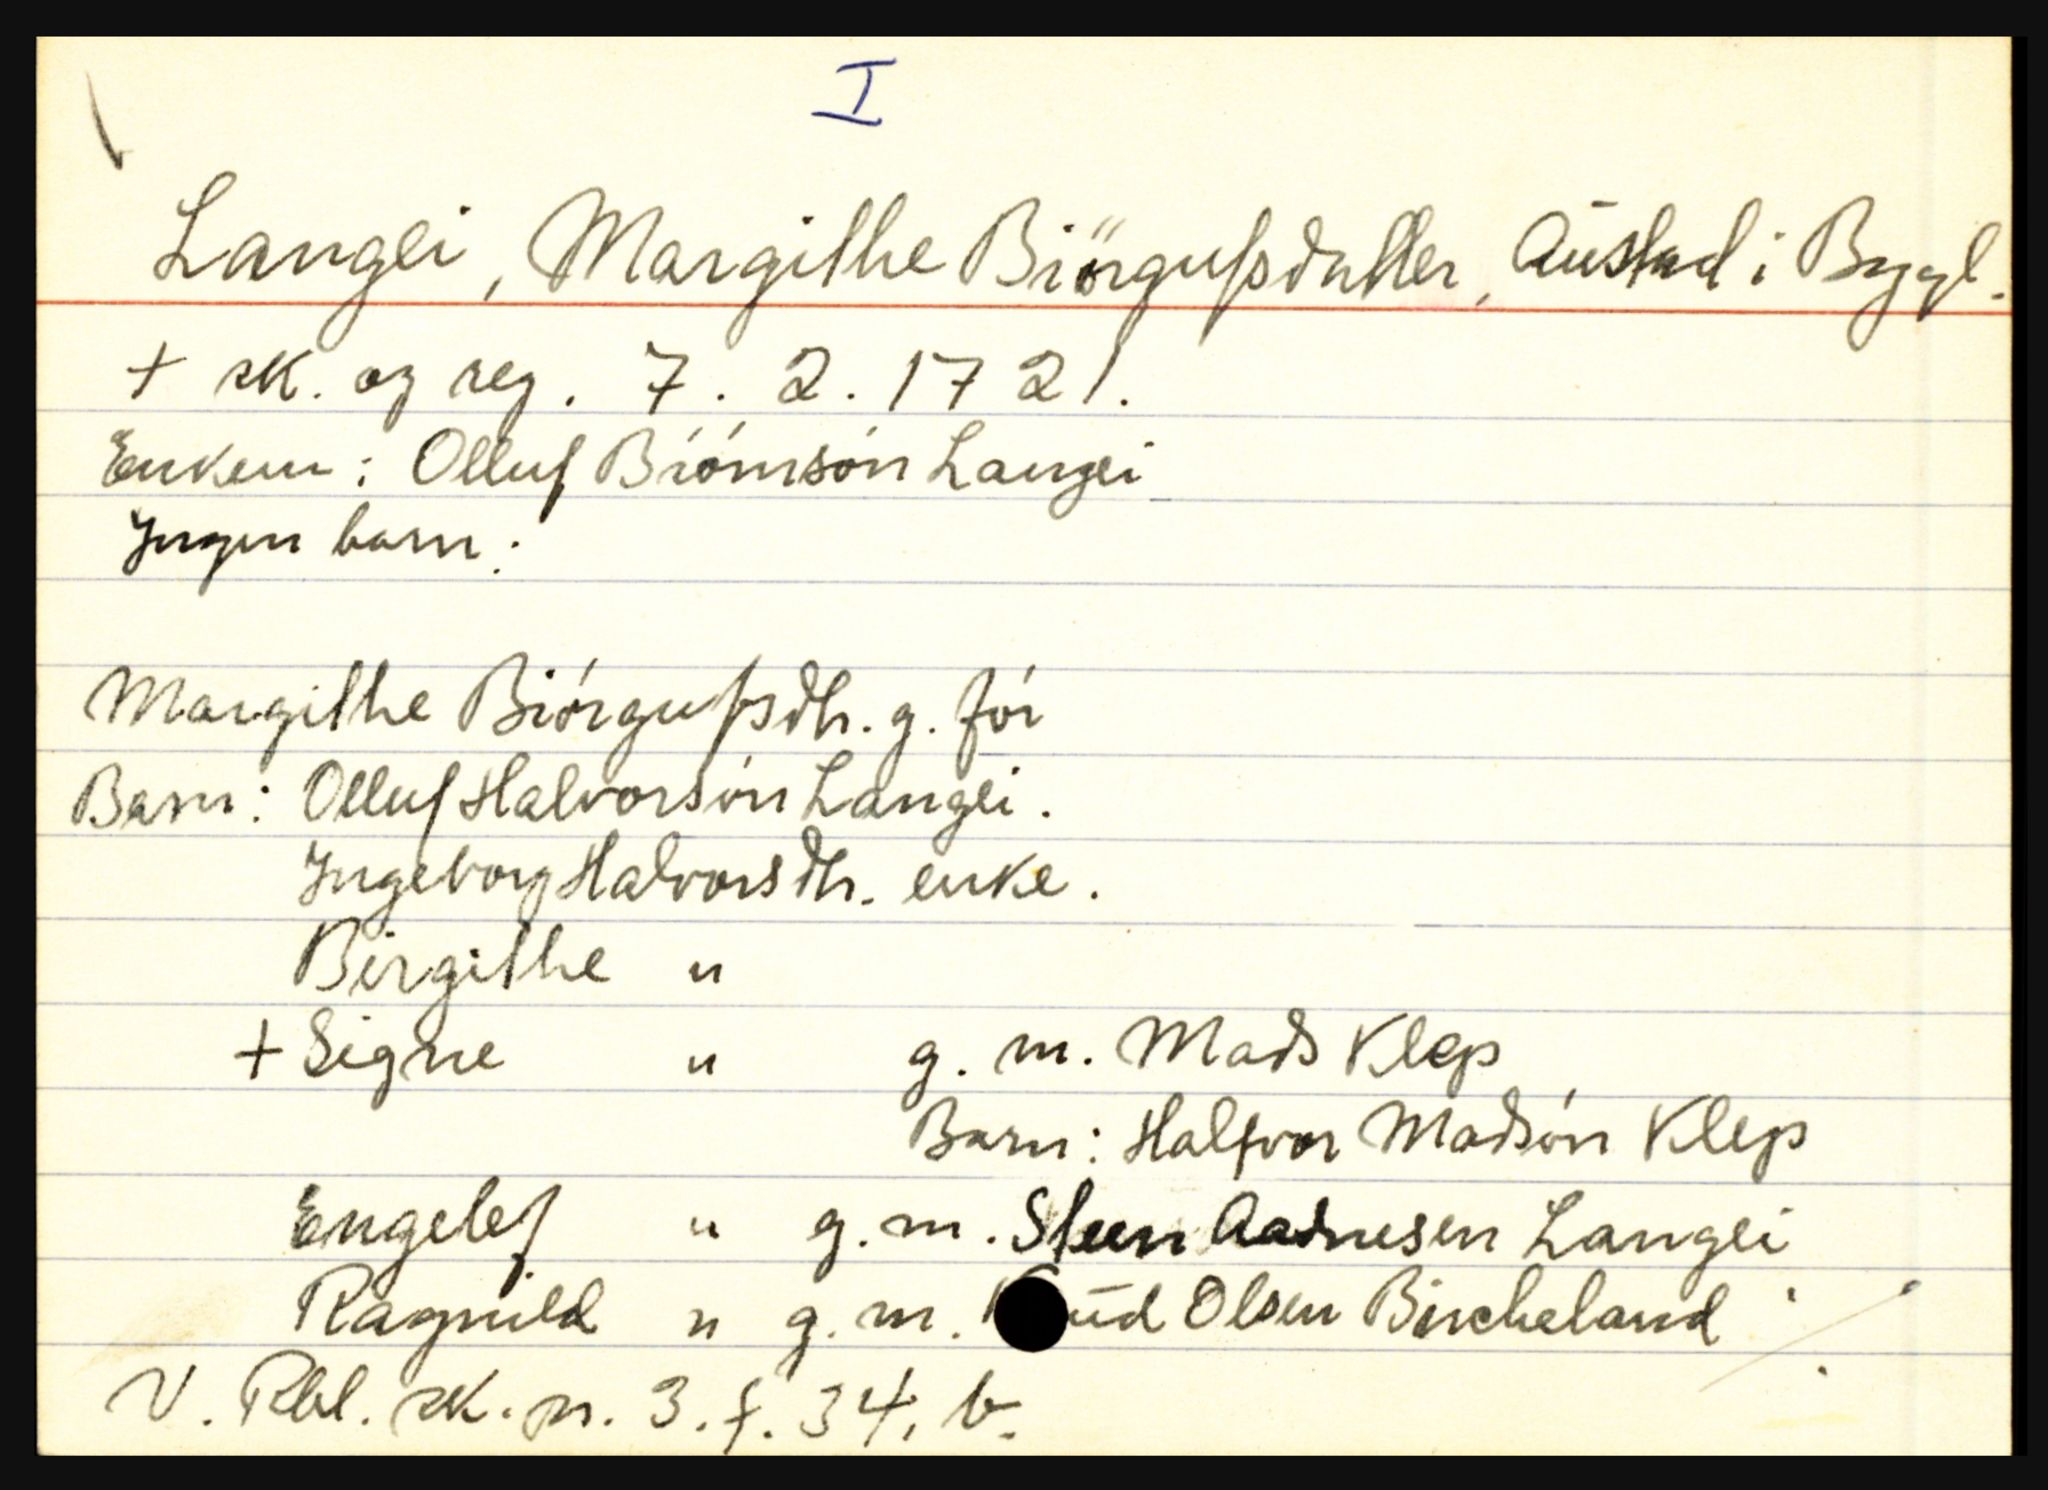 I
Langei, Margithe Biörgufsdatter, Austad i Bygl.
+ sk. og reg. 7. 2. 1721.
Enkem: Olluf Biórnsón Langei
Ingen barn:
Margithe Biórgufsdtr. g. fór
Barn: Olluf Halvorsón Langei.
Ingeborg Halvorsdtr. enke.
Birgithe "
+ Signe " g. m. Mads Klep
Barn: Halfvor Madsón Klep
Engelef " g. m. Steen Aadnesen Langei
Ragnild " g. m. Olsen Bircheland
V. Rbl. sk. pr. 3. f. 34, b.